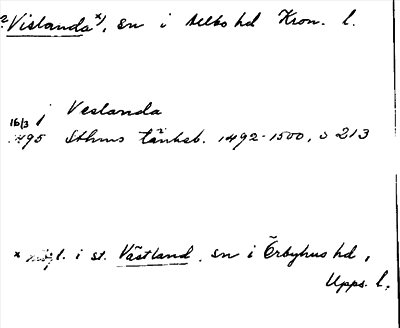 ? Vislanda x), sn i Allbo hd Kron. l.
i Veslanda
16/3 1495 Sthms tänkeb. 1492-1500, s 213
x möjl. i st. Västland, sn i Örbyhus hd,
Upps. l.